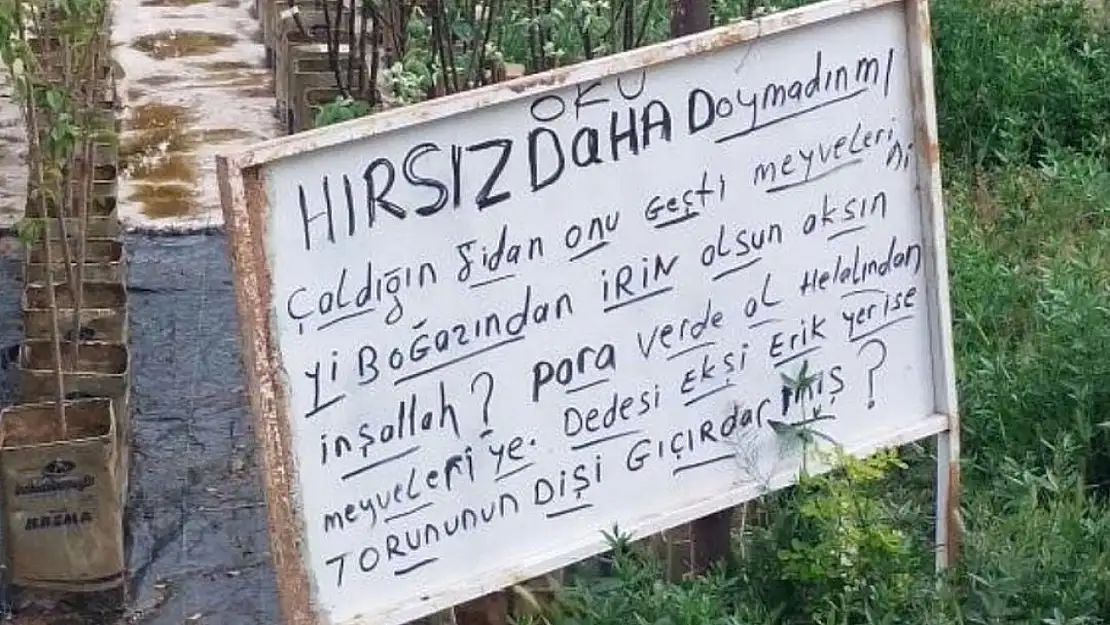 OKU
HIRSIZ DaHA Doymadınmı
Çaldığın Fidan onu Geşti meyveleri Di
yi BoĞazından İRİN olsun aksın
inşallah? para verde al Helalından
meyveleri ye. Dedesi Ekşi Erik yerise
TORUNUNUN DİŞİ GIÇIRdarmış?
BREMA